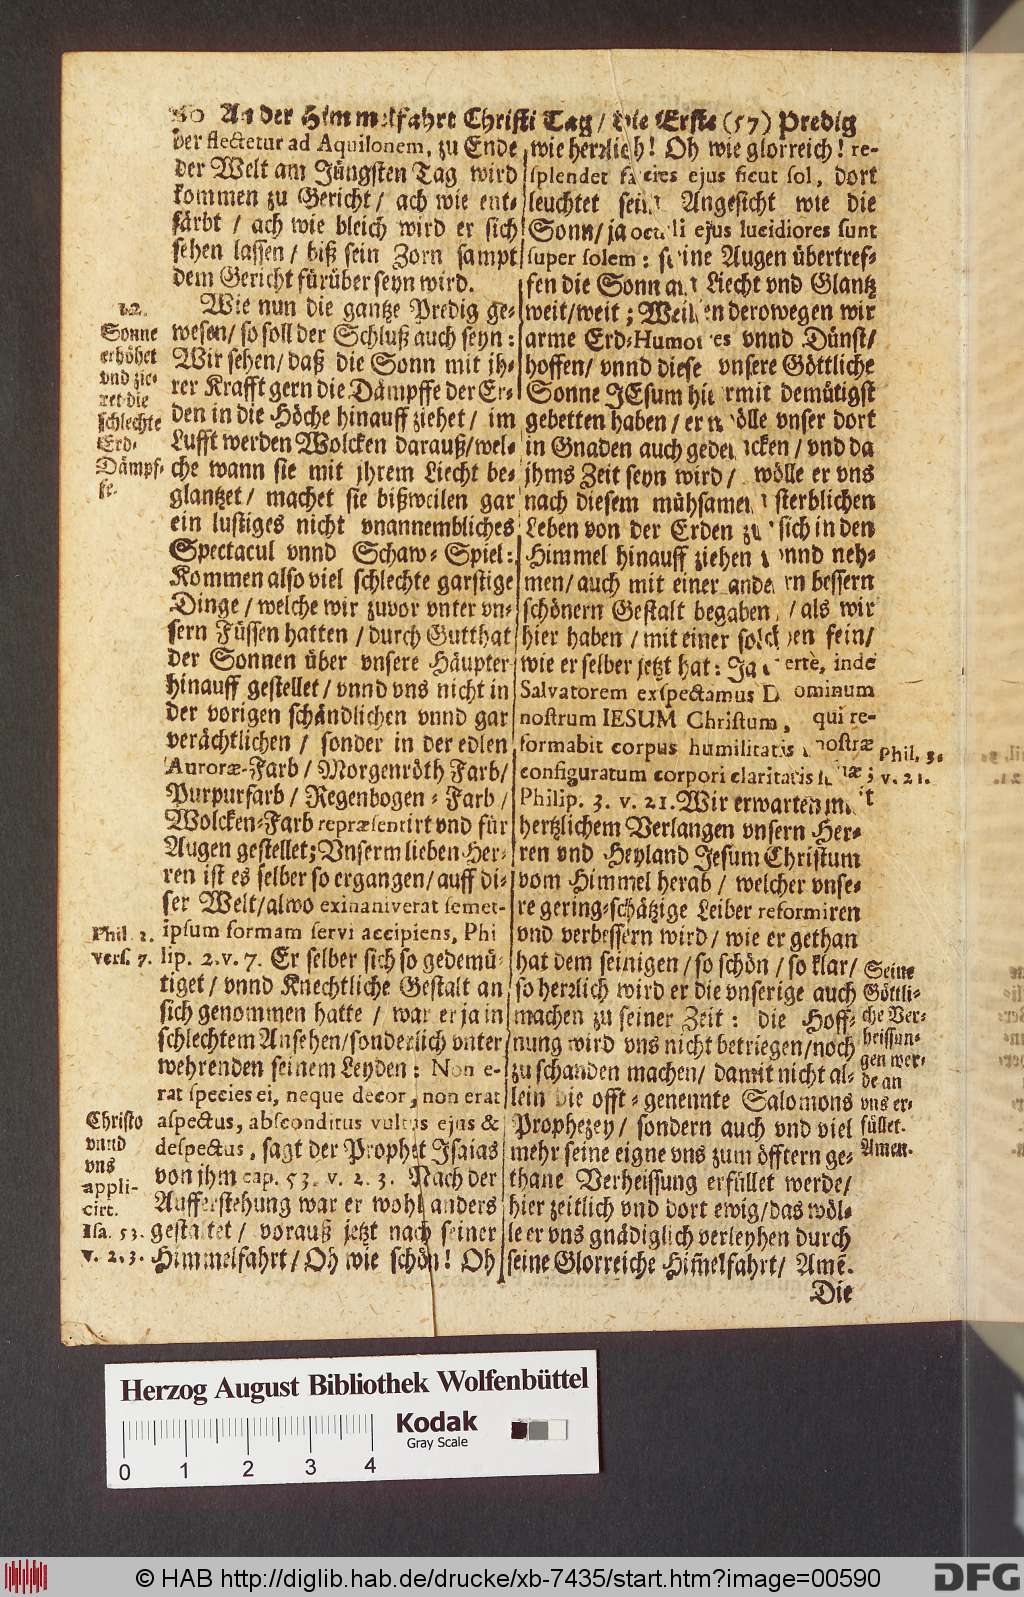 80 An der Himmelfahrt Christi Tag / Die Erste (57) Predig
der flectetur ad Aquilonem, zu Ende
der Welt am Jüngsten Tag wird
kommen zu Gericht / ach wie ent-
färbt / ach wie bleich wird er sich
sehen lassen / biß sein Zorn sampt
dem Gericht fürüber seyn wird.
Wie nun die gantze Predig ge-
wesen / so soll der Schluß auch seyn:
Wir sehen / daß die Sonn mit jh-
rer Krafft gern die Dämpffe der Er-
den in die Höche hinauff ziehet / im
Lufft werden Wolcken darauß / wel-
che wann sie mit jhrem Liecht be-
glantzet / machet sie bißweilen gar
ein lustiges nicht vnannembliches
Spectacul vnnd Schaw-Spiel:
Kommen also viel schlechte garstige
Dinge / welche wir zuvor vnter vn-
sern Füssen hatten / durch Gutthat
der Sonnen über vnsere Häupter
hinauff gestellet / vnnd vns nicht in
der vorigen schändlichen vnnd gar
verächtlichen / sonder in der edlen
Auroræ-Farb / Morgenröth Farb /
Purpurfarb / Regenbogen-Farb /
Wolcken-Farb repræsentirt vnd für
Augen gestellet; Vnserm lieben Her-
ren ist es selber so ergangen / auff di-
ser Welt / alwo exinaniverat semet-
ipsum formam servi accipiens, Phi
lip. 2. v. 7. Er selber sich so gedemü-
tiget / vnnd Knechtliche Gestalt an
sich genommen hatte / war er ja in
schlechtem Ansehen / sonderlich vnter
wehrenden seinem Leyden: Non e-
rat species ei, neque decor, non erat
aspectus, absconditus vultus ejus &
despectus, sagt der Prophet Isaias
von jhm cap. 53. v. 2. 3. Nach der
Aufferstehung war er wohl anders
gestaltet / vorauß jetzt nach seiner
Himmelfahrt / Oh wie schön! Oh
12.
Sonne
erhöhet
vnd zie-
ret die
schlechte
Erd-
Dämpf-
fe.
Phil 2.
vers. 7.
Christo
vnnd
vns
appli-
cirt.
Isa. 53.
v. 2. 3.
wie herrlich! Oh wie glorreich! re-
splendet facies ejus sicut sol, dort
leuchtet sein Angesicht wie die
Sonn / ja oculi ejus lucidiores sunt
super solem: seine Augen übertref-
fen die Sonn an Liecht vnd Glantz
weit / weit; Weilen derowegen wir
arme Erd-Humores vnnd Dünst /
hoffen / vnnd diese vnsere Göttliche
Sonne JEsum hiermit demütigst
gebetten haben / er wölle vnser dort
in Gnaden auch gedencken / vnd da
jhms Zeit seyn wird / wölle er vns
nach diesem mühsamen sterblichen
Leben von der Erden zu sich in den
Himmel hinauff ziehen vnnd neh-
men / auch mit einer andern bessern
schönern Gestalt begaben / als wir
hier haben / mit einer solchen fein /
wie er selber jetzt hat: Ja certè, inde
Salvatorem exspectamus Dominum
nostrum IESUM Christum, qui re-
formabit corpus humilitatis nostræ
configuratum corpori claritatis suæ;
Philip. 3. v. 21. Wir erwarten mit
hertzlichem Verlangen vnsern Her-
ren vnd Heyland Jesum Christum
vom Himmel herab / welcher vnse-
re gering-schätzige Leiber reformiren
vnd verbessern wird / wie er gethan
hat dem seinigen / so schön / so klar /
so herrlich wird er die vnserige auch
machen zu seiner Zeit: die Hoff-
nung wird vns nicht betriegen / noch
zu schanden machen / damit nicht al-
lein die offt-genennte Salomons
Prophezey / sondern auch vnd viel
mehr seine eigne vns zum öfftern ge-
thane Verheissung erfüllet werde /
hier zeitlich vnd dort ewig / das wöl-
le er vns gnädiglich verleyhen durch
seine Glorreiche Him̃elfahrt / Amẽ.
Die
Phil. 3.
v. 21.
Seine
Göttli-
che Ver-
heissun-
gen wer-
de an
vns er-
füllet.
Amen.
Herzog August Bibliothek Wolfenbüttel
Kodak
Gray Scale
0 1 2 3 4
© HAB http://diglib.hab.de/drucke/xb-7435/start.htm?image=00590
DFG